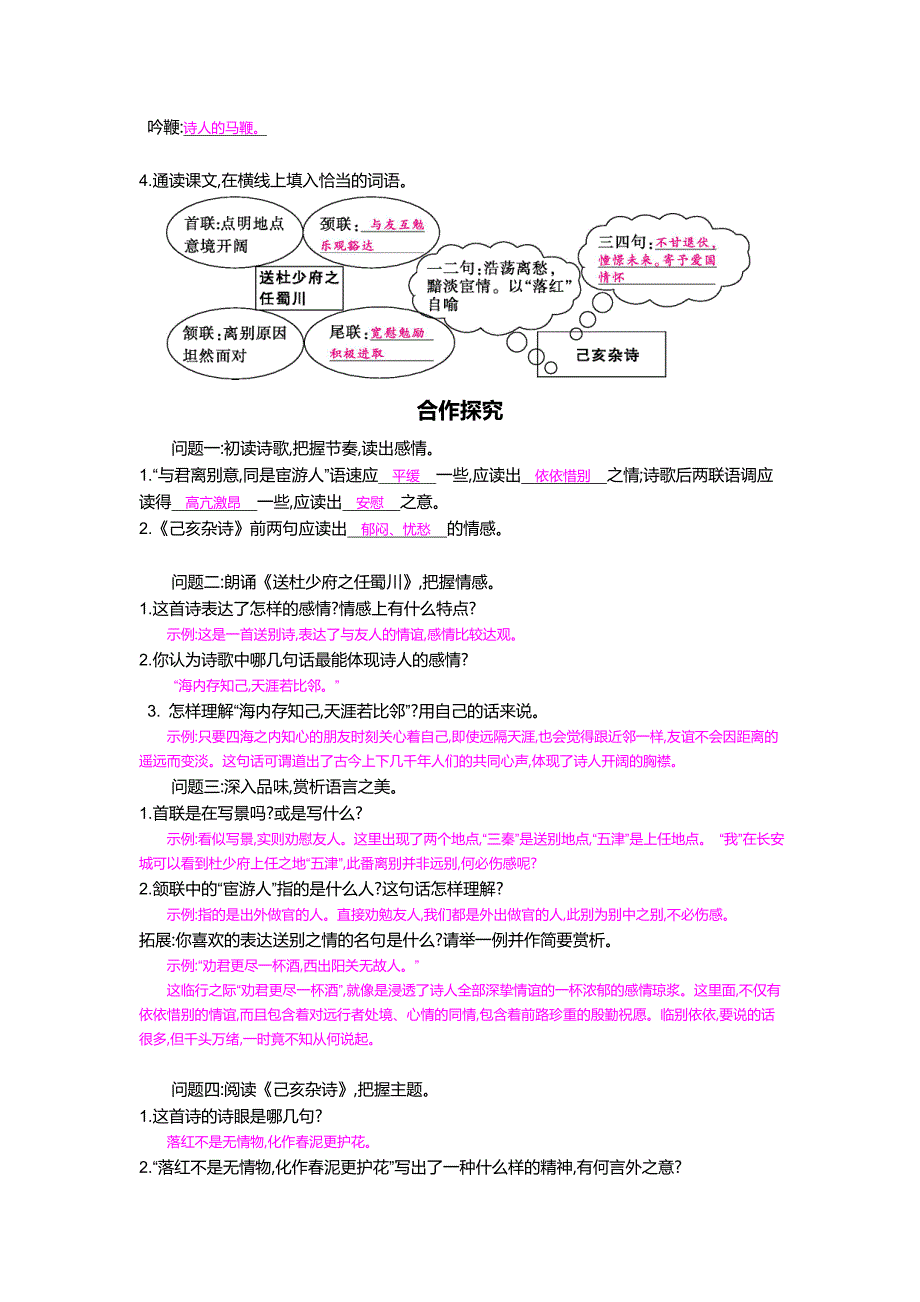 吟鞭:诗人的马鞭。
4.通读课文,在横线上填入恰当的词语。
首联:点明地点
意境开阔
颈联: 与友互勉
乐观豁达
送杜少府之
任蜀川
颔联:离别原因
坦然面对
尾联: 宽慰勉励
积极进取
一二句:浩荡离愁,
黯淡宦情。以“落红”
自喻
三四句:不甘退伏,
憧憬未来。寄予爱国
情怀
己亥杂诗
合作探究
问题一:初读诗歌,把握节奏,读出感情。
1.“与君离别意,同是宦游人”语速应 平缓 一些,应读出 依依惜别 之情;诗歌后两联语调应
读得 高亢激昂 一些,应读出 安慰 之意。
2.《己亥杂诗》前两句应读出 郁闷、忧愁 的情感。
问题二:朗诵《送杜少府之任蜀川》,把握情感。
1.这首诗表达了怎样的感情?情感上有什么特点?
示例:这是一首送别诗,表达了与友人的情谊,感情比较达观。
2.你认为诗歌中哪几句话最能体现诗人的感情?
“海内存知己,天涯若比邻。”
3. 怎样理解“海内存知己,天涯若比邻”?用自己的话来说。
示例:只要四海之内知心的朋友时刻关心着自己,即使远隔天涯,也会觉得跟近邻一样,友谊不会因距离的
遥远而变淡。这句话可谓道出了古今上下几千年人们的共同心声,体现了诗人开阔的胸襟。
问题三:深入品味,赏析语言之美。
1.首联是在写景吗?或是写什么?
示例:看似写景,实则劝慰友人。这里出现了两个地点,“三秦”是送别地点,“五津”是上任地点。 “我”在长安
城可以看到杜少府上任之地“五津”,此番离别并非远别,何必伤感呢?
2.颔联中的“宦游人”指的是什么人?这句话怎样理解?
示例:指的是出外做官的人。直接劝勉友人,我们都是外出做官的人,此别为别中之别,不必伤感。
拓展:你喜欢的表达送别之情的名句是什么?请举一例并作简要赏析。
示例:“劝君更尽一杯酒,西出阳关无故人。”
这临行之际“劝君更尽一杯酒”,就像是浸透了诗人全部深挚情谊的一杯浓郁的感情琼浆。这里面,不仅有
依依惜别的情谊,而且包含着对远行者处境、心情的同情,包含着前路珍重的殷勤祝愿。临别依依,要说的话
很多,但千头万绪,一时竟不知从何说起。
问题四:阅读《己亥杂诗》,把握主题。
1.这首诗的诗眼是哪几句?
落红不是无情物,化作春泥更护花。
2.“落红不是无情物,化作春泥更护花”写出了一种什么样的精神,有何言外之意?